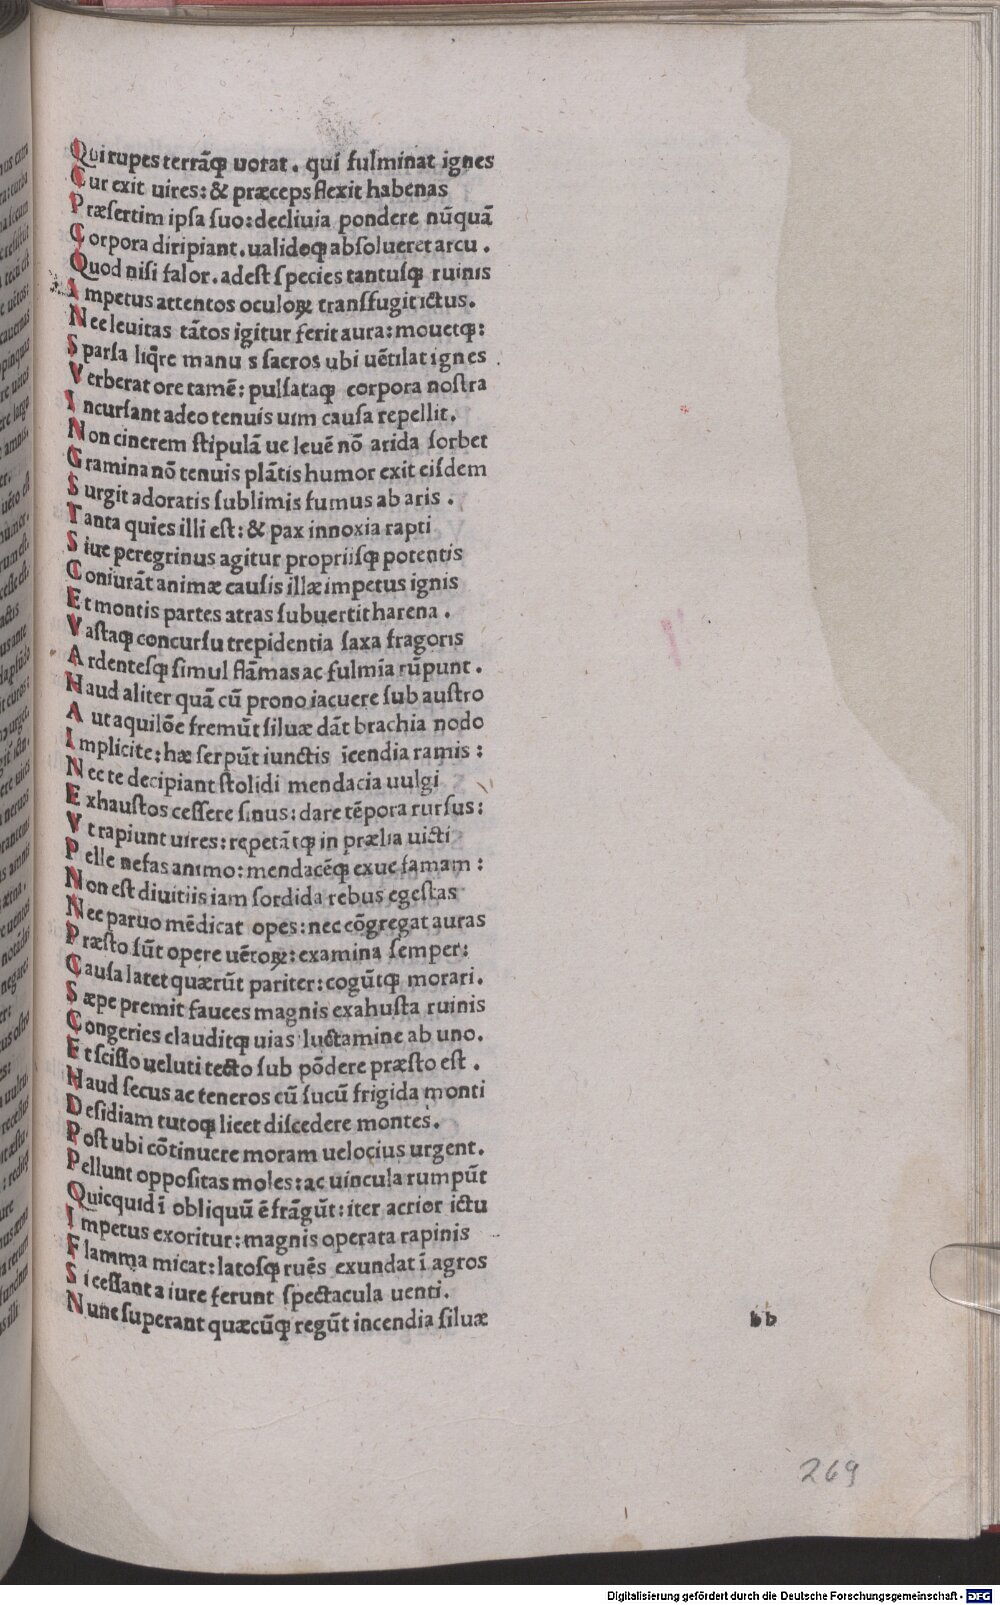 Qui rupes terrãqꝫ uorat . qui fulminat ignes
Cur exit uires: & præceps flexit habenas
Præſertim ipſa ſuo: decliuia pondere nũquã
Corpora diripiant . ualidoqꝫ abſolueret arcu .
Quod niſi falor . adeſt ſpecies tantuſqꝫ ruinis
Impetus attentos oculoꝝ tranſfugit ictus.
Nec leuitas tãtos igitur ferit aura: mouetqꝫ:
Sparſa liq̃re manu s ſacros ubi uẽtilat ignes .
Verberat ore tamẽ: pulſataqꝫ corpora noſtra
Incurſant adeo tenuis uim cauſa repellit.
Non cinerem ſtipulã ue leuẽ nõ arida ſorbet
Gramina nõ tenuis plãtis humor exit eiſdem
Surgit adoratis ſublimis fumus ab aris .
Tanta quies illi eſt: & pax innoxia rapti
Siue peregrinus agitur propriiſqꝫ potentis
Coniurãt animæ cauſis illæ impetus ignis
Et montis partes atras ſubuertit harena .
Vaſtaqꝫ concurſu trepidentia ſaxa fragoris
Ardenteſqꝫ ſimul flãmas ac fulmĩa rũpunt .
Haud aliter quã cũ prono iacuere ſub auſtro
Aut aquilõe fremũt ſiluæ dãt brachia nodo
Implicite: hæ ſerpũt iunctis ĩcendia ramis :
Nec te decipiant ſtolidi mendacia uulgi
Exhauſtos ceſſere ſinus: dare tẽpora rurſus:
Vt rapiunt uires: repetãtqꝫ in prælia uicti
Pelle nefas animo: mendacẽqꝫ exue famam :
Non eſt diuitiis iam ſordida rebus egeſtas
Nec paruo mẽdicat opes: nec cõgregat auras
Præſto ſũt opere uẽtoꝝ: examina ſemper:
Cauſa latet quærũt pariter: cogũtqꝫ morari.
Sæpe premit fauces magnis exahuſta ruinis
Congeries clauditqꝫ uias luctamine ab uno.
Et ſciſſo ueluti tecto ſub põdere præſto eſt .
Haud ſecus ac teneros cũ ſucũ frigida monti
Deſidiam tutoqꝫ licet diſcedere montes.
Poſt ubi cõtinuere moram uelocius urgent.
Pellunt oppoſitas moles: ac uincula rumpũt
Quicquid ĩ obliquũ ẽ frãgũt: iter acrior ictu
Impetus exoritur: magnis operata rapinis
Flamma micat: latoſqꝫ ruẽs exundat ĩ agros
Si ceſſant a iure ferunt ſpectacula uenti.
Nunc ſuperant quæcũqꝫ regũt incendia ſiluæ
bb
269
Digitalisierung gefördert durch die Deutsche Forschungsgemeinschaft - DFG